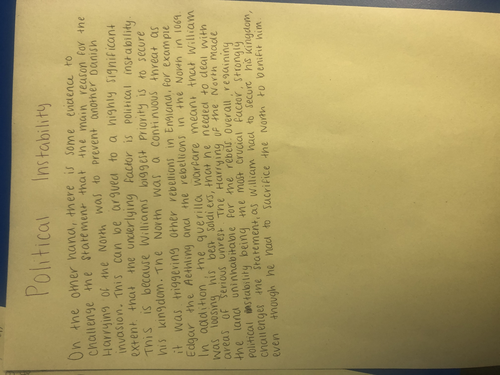 Political Instability
On the other hand, there is some evidence to
challenge the statement that the main reason for the
Harrying of the North was to prevent another Danish
invasion. This can be argued to a highly significant
extent that the underlying factor is political instability
This is because Williams biggest priority is to secure
his kingdom. The North was a continuous threat as
it was triggering other rebellions in England, for example
Edgar the Aethling and the rebellions in the North in 1069
In addition the guerilla warfare meant that William
was loosing his best soldiers, that he needed to deal with
areas of serious unrest The Harrying of the North made
the land uninhabitable for the rebels. Overall regaining
political instability being the most crucial factor, strongly
challenges the statement, as William had to secure his kingdom,
even though he had to sacrifice the North to benifit him